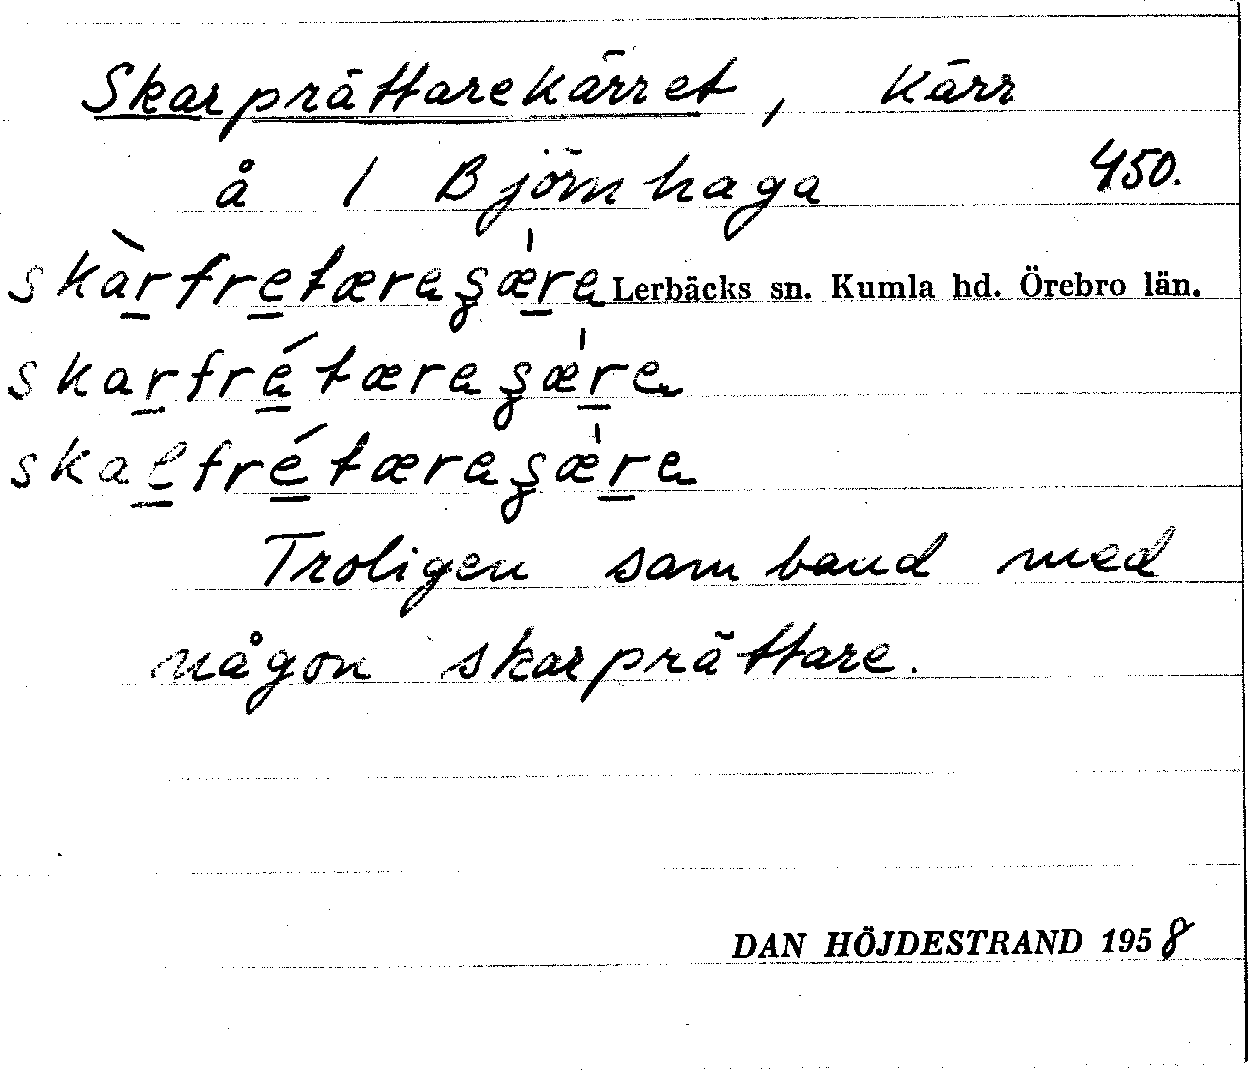 Skarprättarekärret, kärr
å 1 Björnhaga 450.
skàrfretæraʂæ̍ra Lerbäcks sn. Kumla hd. Örebro län.
skarfrétæraʂæ̍ra
skalfrétæraʂæ̍ra
Troligen samband med
någon skarprättare.
DAN HÖJDESTRAND 1958